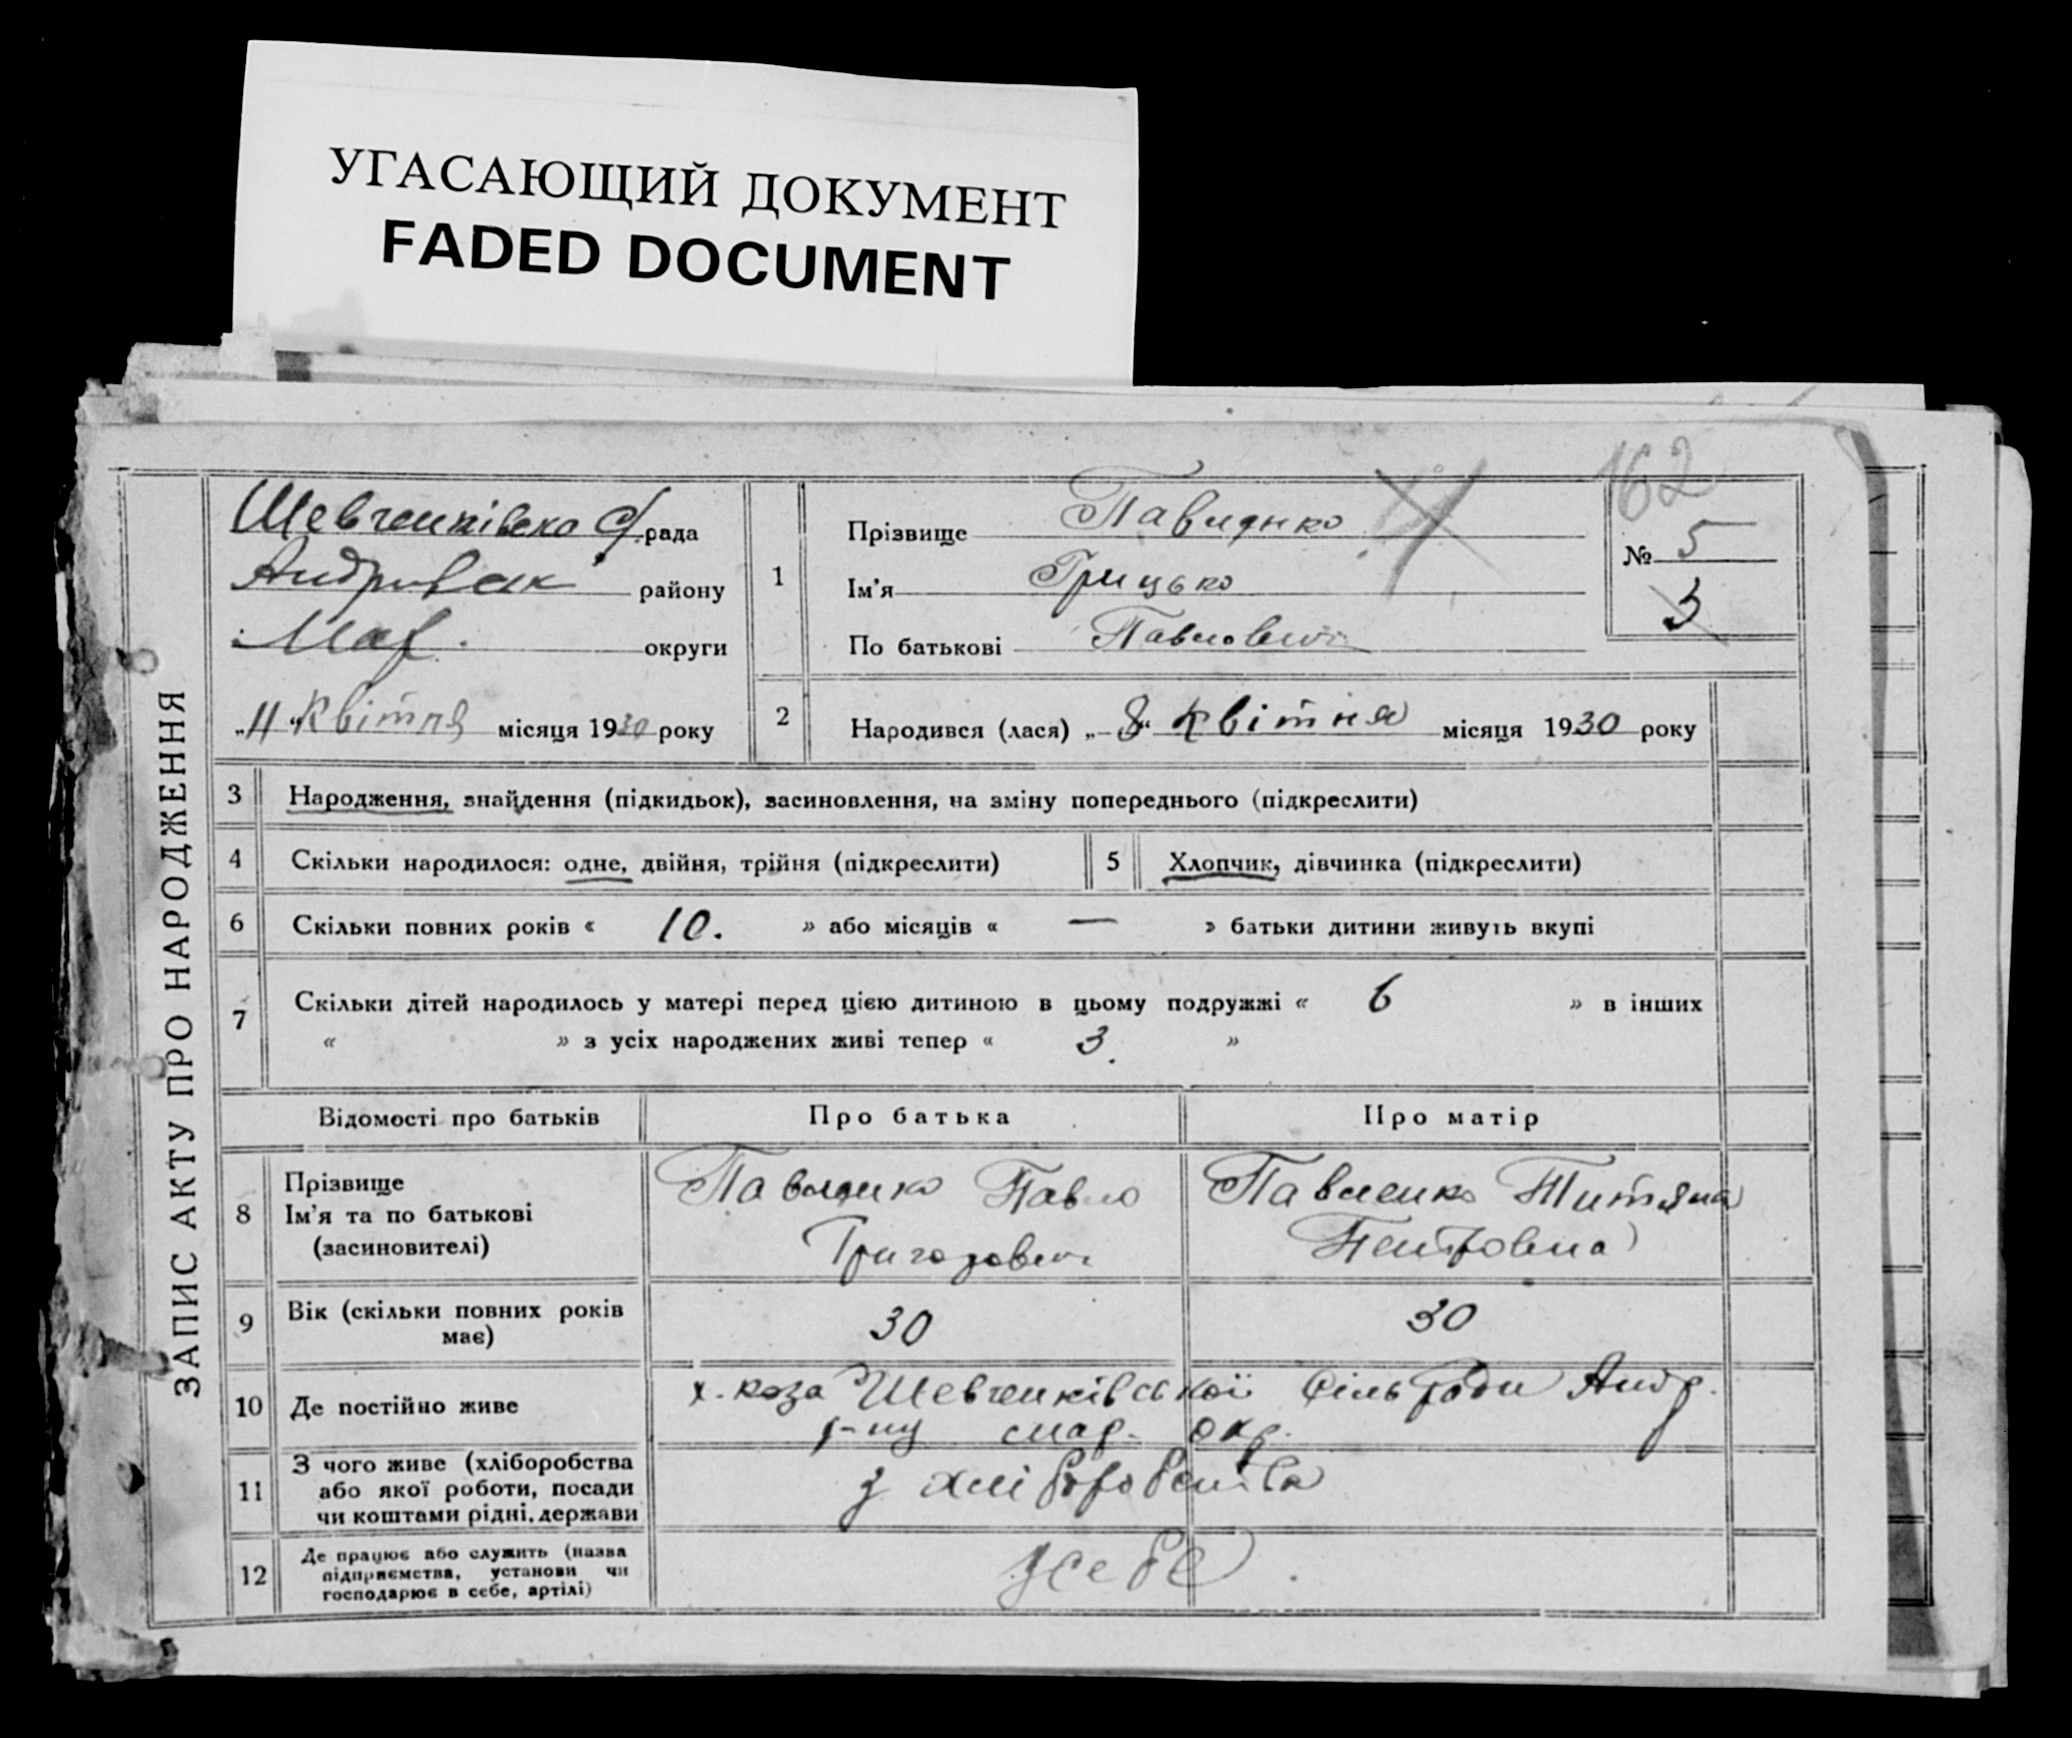 УГАСАЮЩИЙ ДОКУМЕНТ
FADED DOCUMENT
162
ЗАПИС АКТУ ПРО НАРОДЖЕННЯ
Шевченківська с/рада
Андрівськ району
Мар. округи
„11“ Квітня місяця 1930 року
1
Прізвище Павленко
Ім'я Грицько
По батькові Павлович
№ 5
3
2 Народився (лася) „8“ Квітня місяця 1930 року
3 Народження, знайдення (підкидьок), засиновлення, на зміну попереднього (підкреслити)
4 Скільки народилося: одне, двійня, трійня (підкреслити) 5 Хлопчик, дівчинка (підкреслити)
6 Скільки повних років « 10. » або місяців « — » батьки дитини живуть вкупі
7 Скільки дітей народилось у матері перед цією дитиною в цьому подружжі « 6 » в інших
« » з усіх народжених живі тепер « 3. »
Відомості про батьків Про батька Про матір
8 Прізвище
Ім'я та по батькові
(засиновителі)
Павленко Павло
Григорович
Павленко Титяна
Петровна
9 Вік (скільки повних років
має)
30 30
10 Де постійно живе
х. коза Шевченківської Сільради Андр.
р-ну мар. окр.
11 З чого живе (хліборобства
або якої роботи, посади
чи коштами рідні, держави
з хліборобства
12 Де працює або служить (назва
підприємства, установи чи
господарює в себе, артілі)
у себе